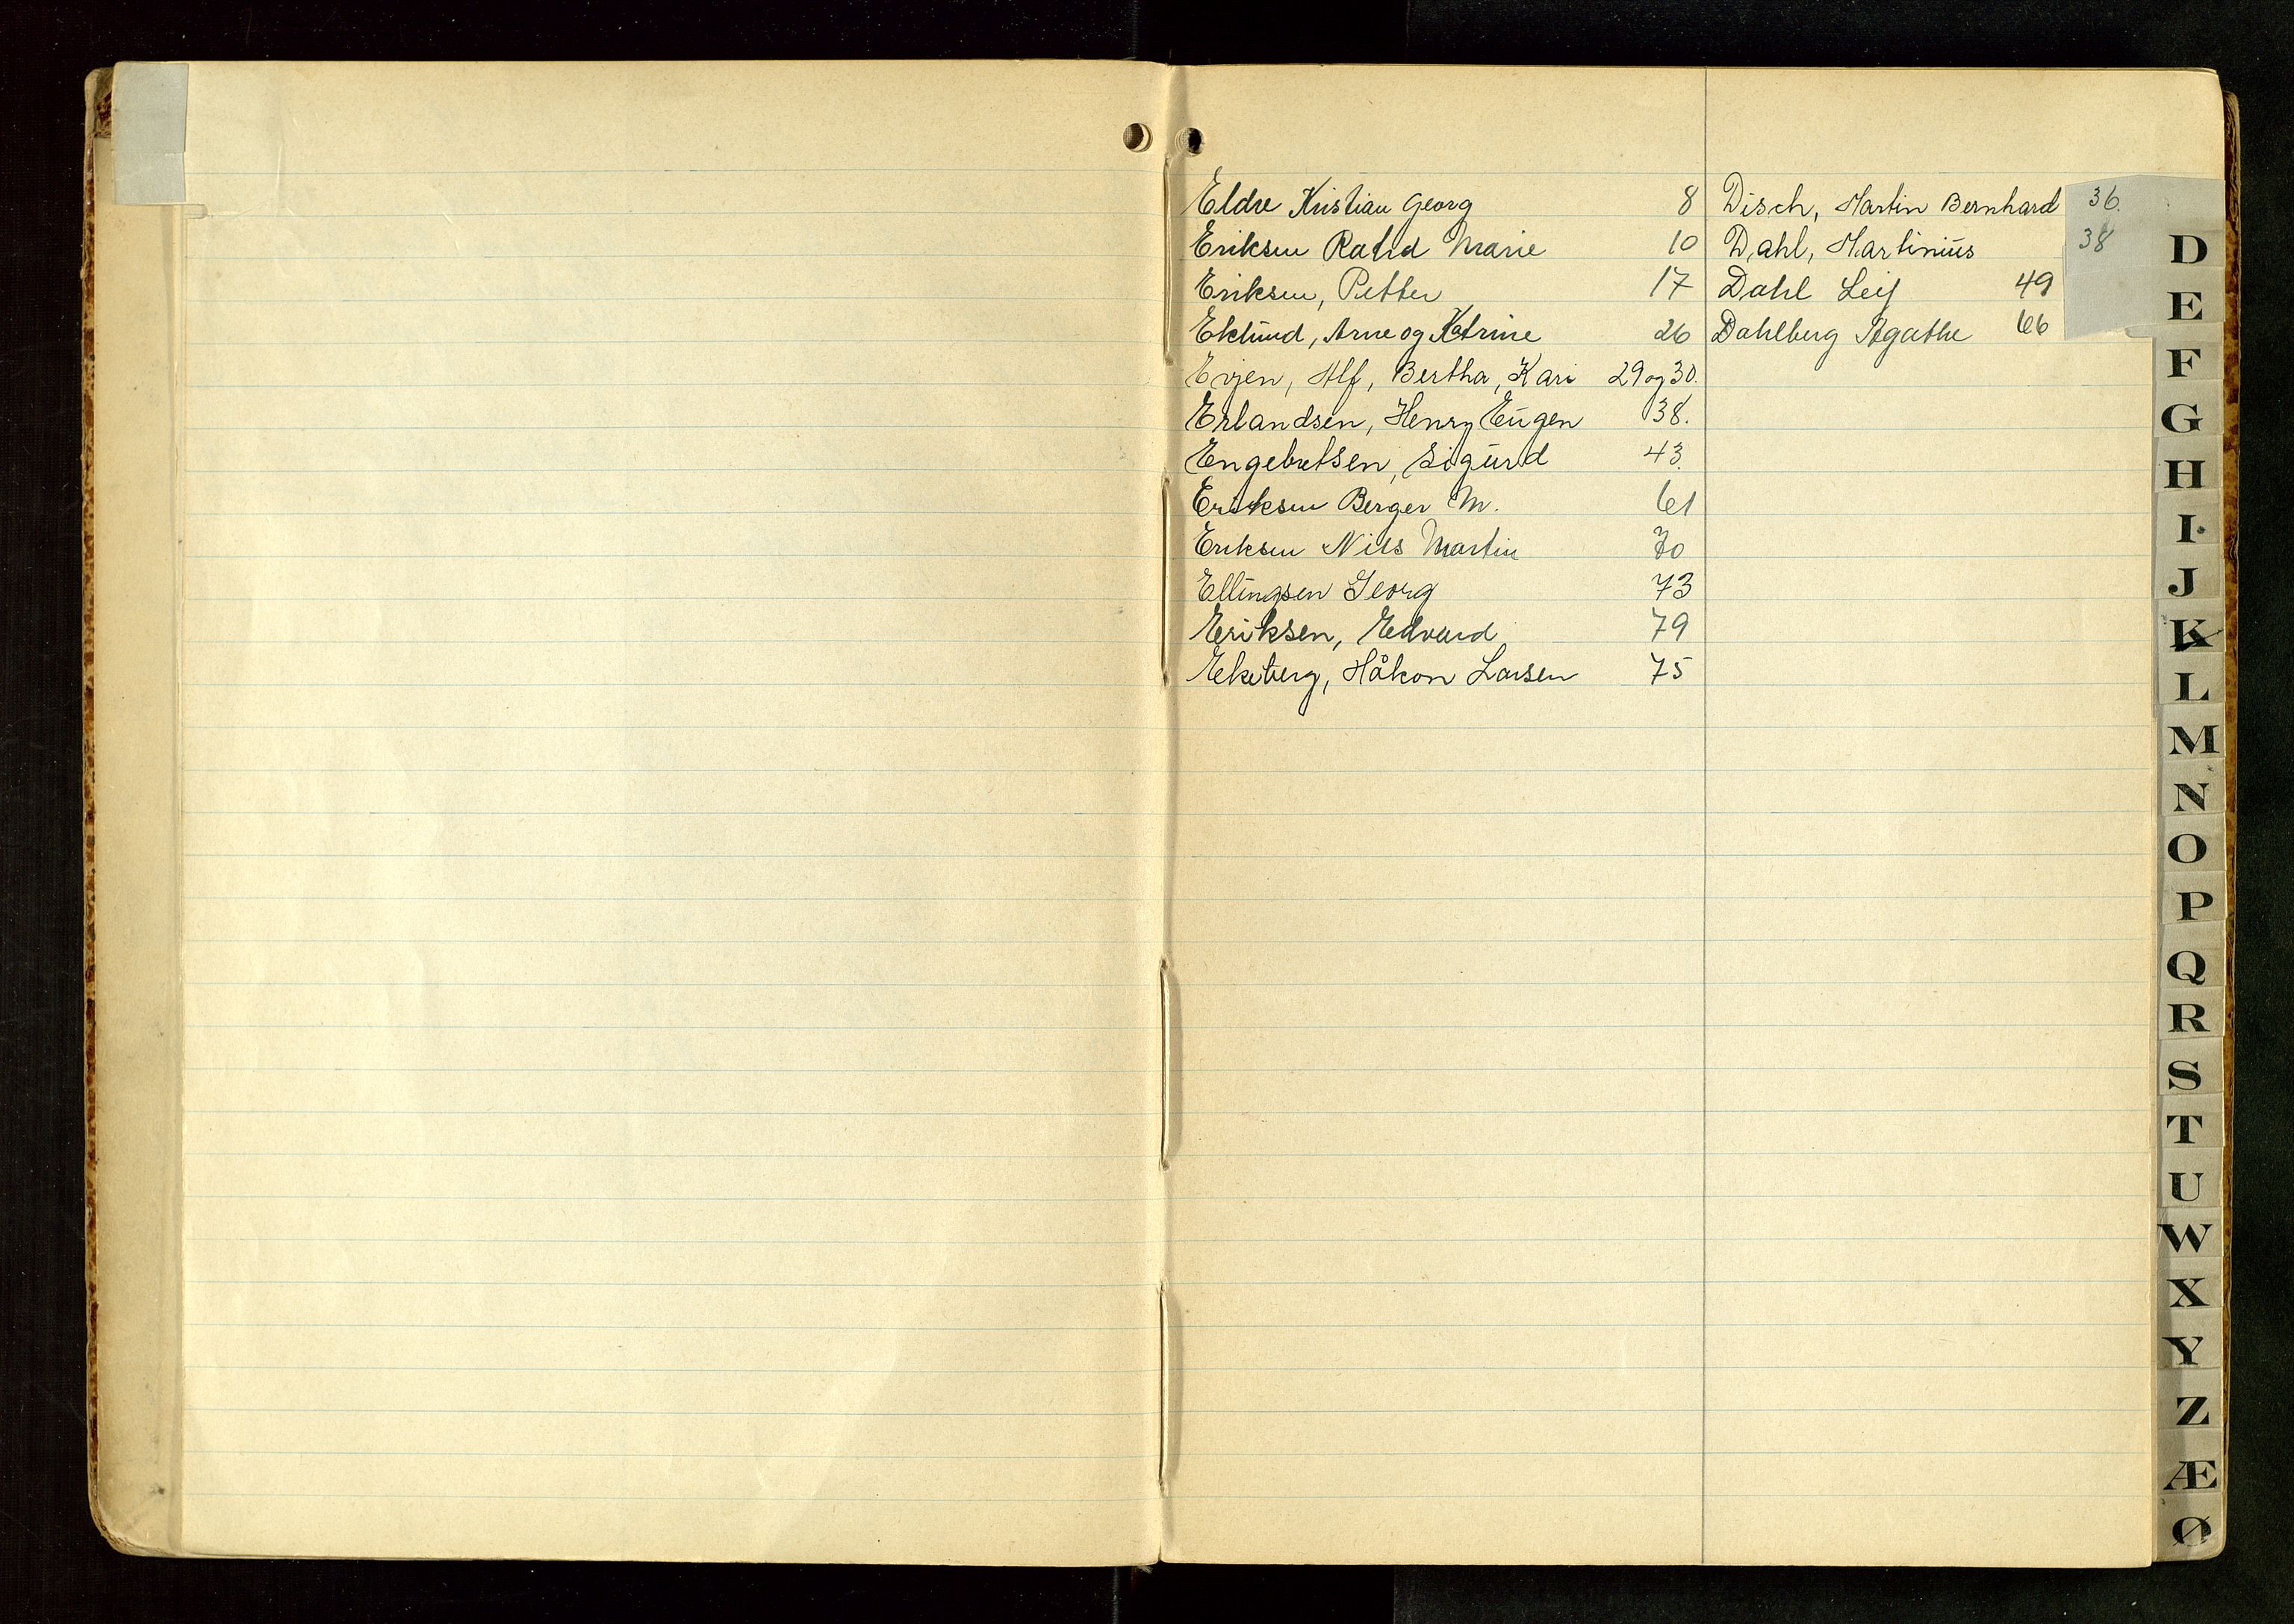 Eldre Kristian Georg 8
Eriksen Marie 10
Eriksen, Petter 17
Eklund, Arne og Katrine 26
Evjen, Alf, Bertha, Kari 29 og 30.
Erlandsen, Henry Eugen 38.
Engebretsen, Sigurd 43.
Eriksen Berger M. 61
Eriksen Nils Martin 70
Ellingsen Georg 73
Eriksen, Edvard 79
Ekeberg, Håkon Larsen 75
Disch, Martin Bernhard 36.
Dahl, Martinius 38
Dahl Leif 49
Dahlberg Agathe 66
D
E
F
G
H
I
J
K
L
M
N
O
P
Q
R
S
T
U
W
X
Y
Z
Æ
Ø